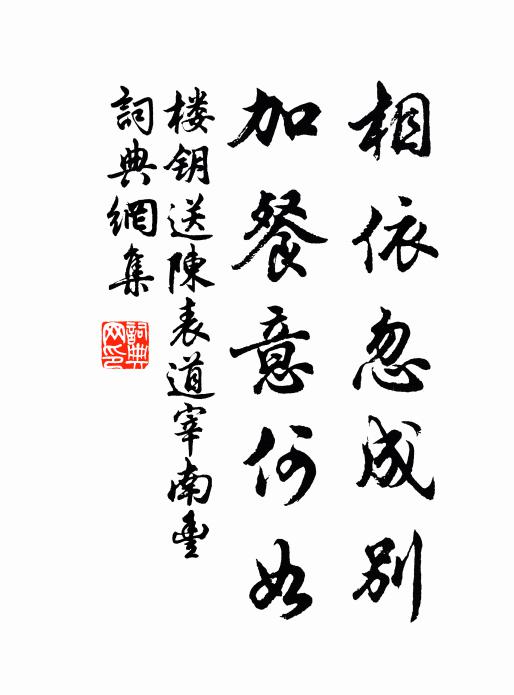 相依忽成別
加餐意何如
楼钥送陳表道宰南豐
詞典網集
詞典網印